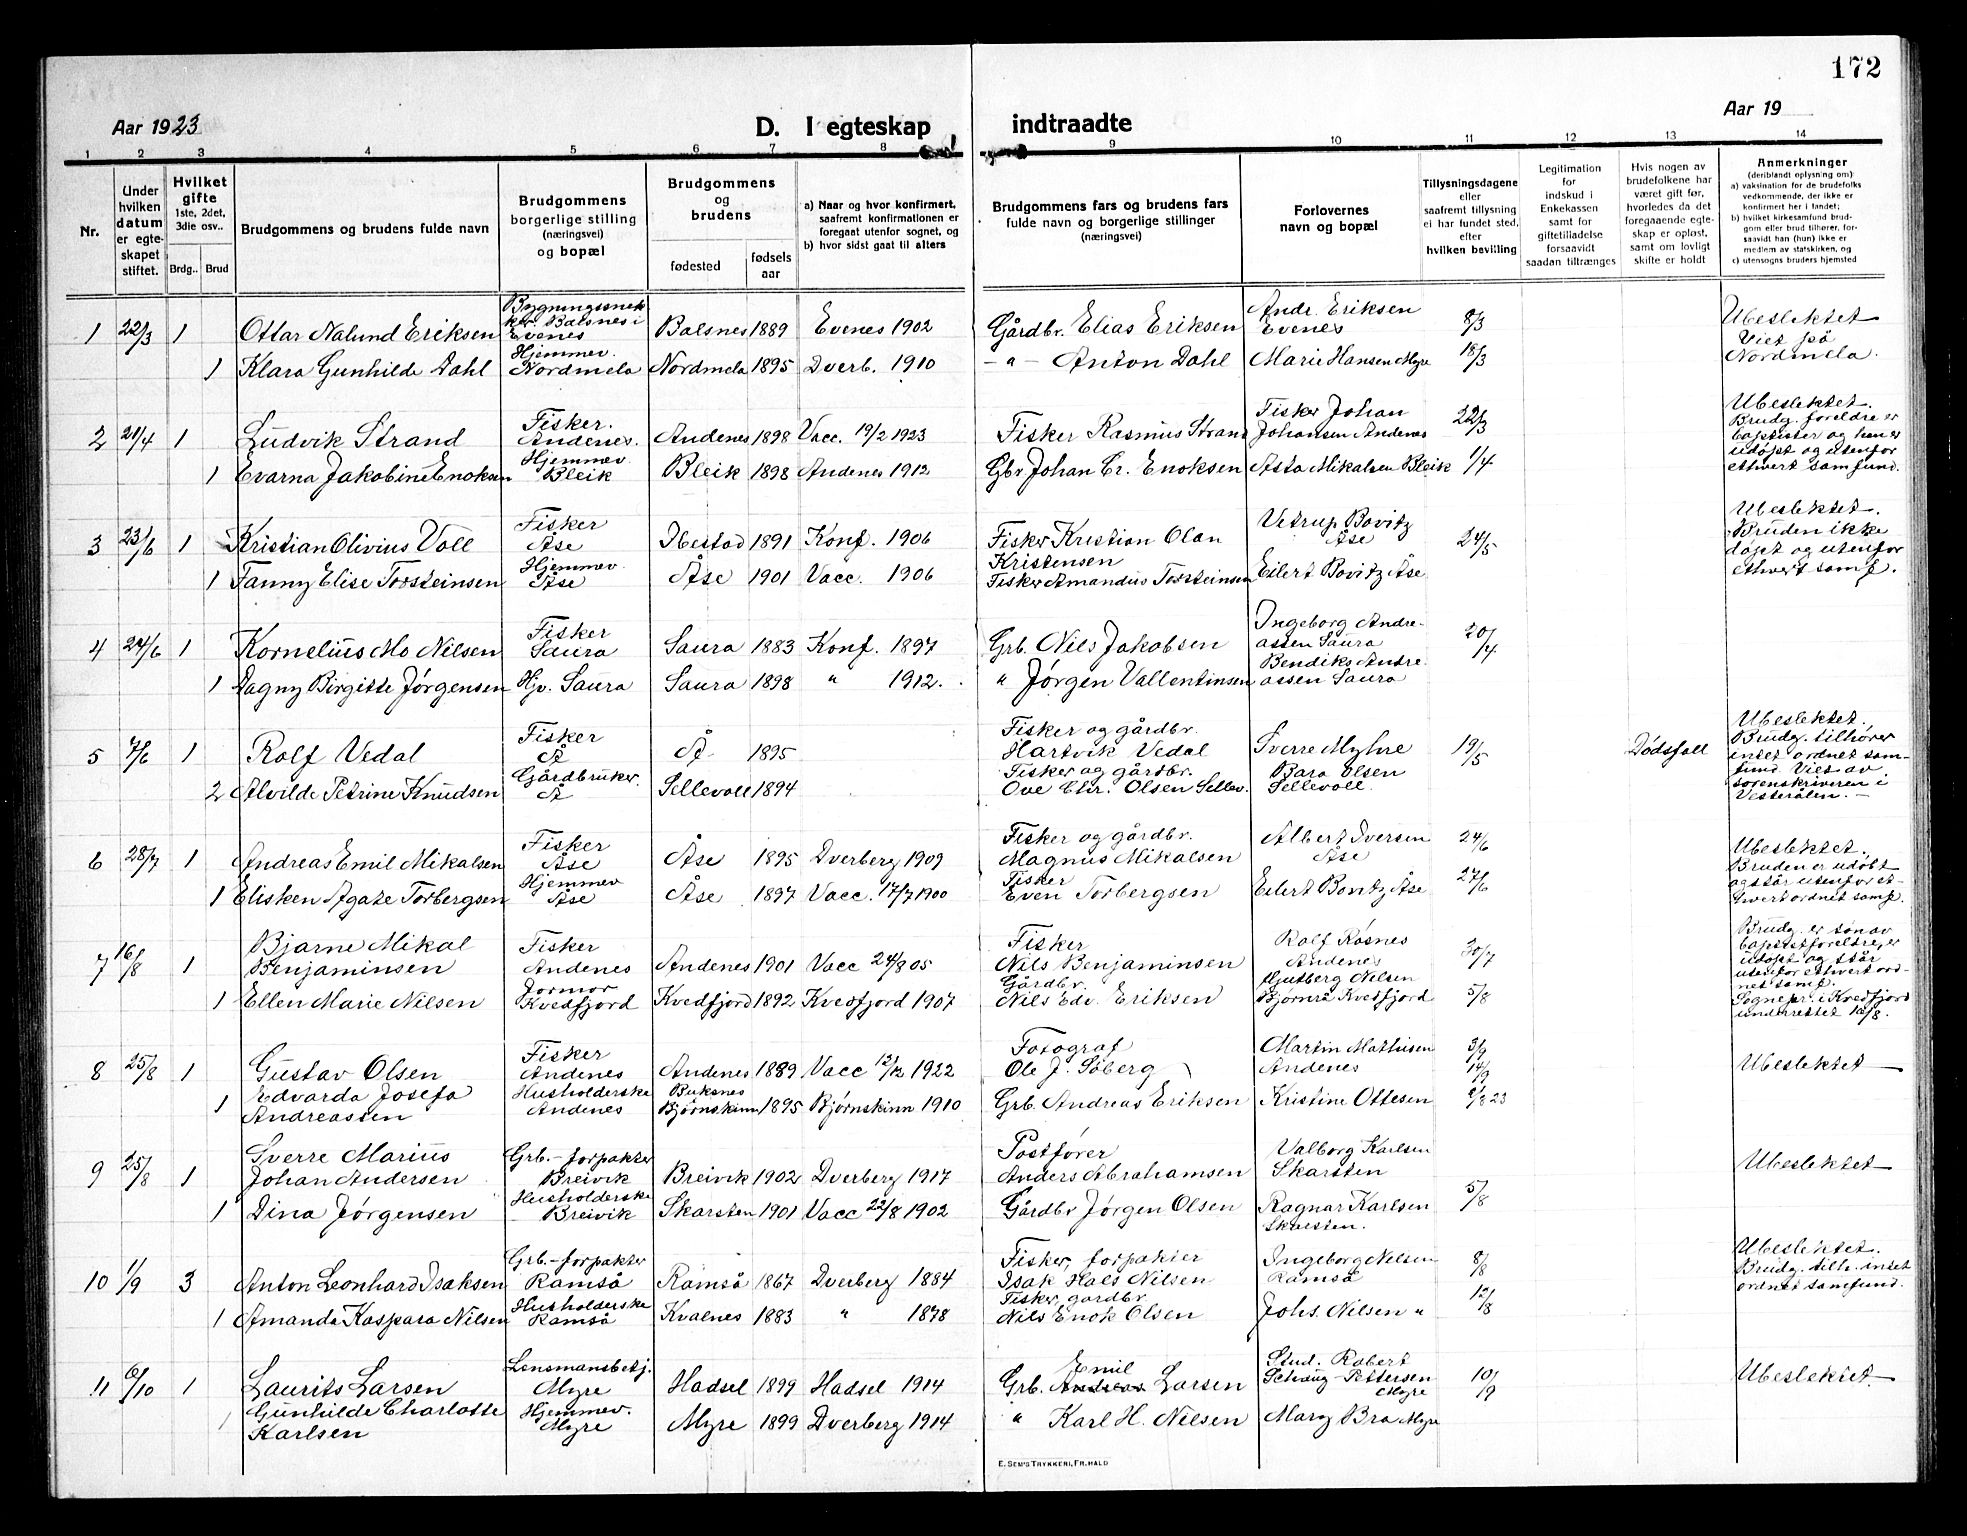 172
Aar 1923
D. I egteskap indtraadte
Aar 19
1 2 3 4 5 6 7 8 9 10 11 12 13 14
Nr.
Under hvilken datum er egteskapet stiftet.
Hvilket gifte 1ste, 2det, 3die osv..
Brdg.. Brud
Brudgommens og brudens fulde navn
Brudgommens borgerlige stilling (næringsvei) og bopæl
Brudgommens og brudens
fødested
fødsels aar
a) Naar og hvor konfirmert, saafremt konfirmationen er foregaat utenfor sognet, og
b) hvor sidst gaat til alters
Brudgommens fars og brudens fars fulde navn og borgerlige stillinger (næringsvei)
Forlovernes navn og bopæl
Tillysningsdagene eller saafremt tillysning ei har fundet sted, efter hvilken bevilling
Legitimation for indskud i Enkekassen samt for giftetilladelse forsaavidt saadan tiltrænges
Hvis nogen av brudefolkene har været gift før, hvorledes da det foregaaende egteskap er opløst, samt om lovligt skifte er holdt
Anmerkninger (deriblandt oplysning om)
a) vaksination for de brudefolks vedkommende, der ikke er konfirmert her i landet;
b) hvilket kirkesamfund brudgom eller brud tilhører, forsaavidt han (hun) ikke er medlem av statskirken, og
c) utensogns bruders hjemsted
1 22/3 1 Ottar Nalund Eriksen Bygningssnekker. Balsnes i Evenes Balsnes 1889 Evenes 1902 Gårdbr. Elias Eriksen Andr. Eriksen Evenes 8/3 Ubeslektet Viet på Nordmela.
1 Klara Gunhilde Dahl Hjemmev. Nordmela Nordmela 1895 Dverb. 1910 – " – Anton Dahl Marie Hansen Myre 18/3
2 21/4 1 Ludvik Strand Fisker. Andenes. Andenes 1898 Vacc. 19/2 1923 Fisker Rasmus Strand Fisker Johan Johansen Andenes 22/3 Ubeslektet. Brudg. foreldre er baptister og han er udøpt og utenfor ethvert samfund.
1 Evarna Jakobine Enoksen Hjemmev Bleik Bleik 1898 Andenes 1912 Gbr Johan Cr. Enoksen Asta Mikalsen Bleik 1/4
3 23/6 1 Kristian Olivius Voll Fisker Åse Ibestad 1891 Konf. 1906 Fisker Kristian Olan Kristensen Vetrup Bovitz Åse 24/5 Ubeslektet. Bruden ikke døpt og utenfor ethvert samf.
1 Fanny Elise Torsteinsen Hjemmev. Åse Åse 1901 Vacc. 1906 Fisker Amandus Torsteinsen Eilert Bovitz Åse
4 24/6 1 Kornelius Mo Nilsen Fisker Saura Saura 1883 Konf. 1897 Grb. Nils Jakobsen Ingeborg Andreassen Saura 20/4
1 Dagny Birgitte Jørgensen Hjv. Saura Saura 1898 " 1912. " Jørgen Vallentinsen Bendiks Andreassen Saura
5 7/6 1 Rolf Vedal Fisker Å Å 1895 Fisker og gårdbr. Hartvik Vedal Sverre Myhre 19/5 Dødsfall Ubeslektet. Brudg. tilhører intet ordnet samfund. Viet av sorenskriveren i Vesterålen. –
2 Alvilde Petrine Knudsen Gårdbruker. Å Sellevoll 1894 Fisker og gårdbr. Ove Chr. Olsen Sellev. Bara Olsen Sellevoll.
6 28/7 1 Andreas Emil Mikalsen Fisker Åse Åse 1895 Dverberg 1909 Fisker og gårdbr. Magnus Mikalsen Albert Iversen Åse 24/6 Ubeslektet. Bruden er udøbt og står utenfor ethvert ordnet samf.
1 Elisken Agate Torbergsen Hjemmev Åse Åse 1897 Vacc. 17/7 1900 Fisker Even Torbergsen Eilert Bovitz Åse 27/6
7 16/8 1 Bjarne Mikal Benjaminsen Fisker Andenes Andenes 1901 Vacc 24/8 05 Fisker Nils Benjaminsen Rolf Røsnes Andenes 30/7 Brudg. er søn av baptistforeldre, er udøpt og står utenfor ethvert ordnet samf. Sognepr. i Kvedfjord underrettet 10/8.
1 Ellen Marie Nilsen Jormor Kvedfjord Kvedfjord 1892 Kvedfjord 1907 Gårdbr. Nils Edv. Eriksen Hjutberg Nilsen Bjørnrå Kvedfjord 5/8
8 25/8 1 Gustav Olsen Fisker Andenes Andenes 1889 Vacc 12/12 1922 Fotograf Ole J. Søberg Martin Mathisen Andenes 3/9 14/9 Ubeslektet
1 Edvarda Josefa Andreassen Husholderske Andenes Buksnes Bjørnskinn 1895 Bjørnskinn 1910 Grb. Andreas Eriksen Kristine Ottesen 2/8 23
9 25/8 1 Sverre Marius Johan Andersen Grb.-forpakter Breivik Breivik 1902 Dverberg 1917 Postfører Anders Abrahamsen Valborg Karlsen Skarsten Ubeslektet
1 Dina Jørgensen Husholderske Breivik Skarsten 1901 Vacc 22/8 1902 Gårdbr Jørgen Olsen Ragnar Karlsen Skarsten. 5/8
10 1/9 3 Anton Leonhard Isaksen Grb.-forpakter Ramså Ramså 1867 Dverberg 1884 Fisker, forpakter Isak Hals Nilsen Ingeborg Nilsen Ramså 8/8 Ubeslektet. Brudg. tilh. intet ordnet samfund.
1 Amanda Kaspara Nilsen Husholderske Ramså Kvalnes 1883 " 1878 Fisker, gardbr Nils Enok Olsen Johs. Nilsen " 12/8
11 6/10 1 Laurits Larsen Lensmansbetj. Myre Hadsel 1899 Hadsel 1914 Grb. Emil Andreas Larsen Stud. Robert Schaug-Pettersen Myre 10/9 Ubeslektet.
1 Gunhilde Charlotte Karlsen Hjemmev. Myre Myre 1899 Dverberg 1914 " Karl H. Nilsen Mary Bra Myre
E. SEM'S TRYKKERI, FR.HALD